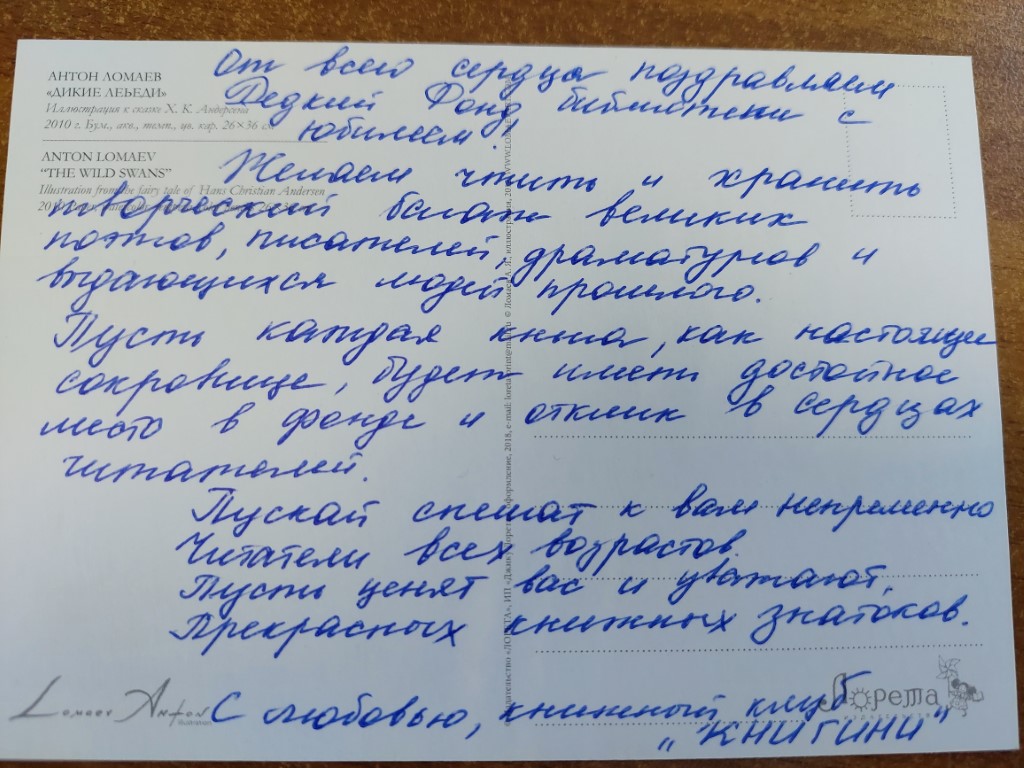 АНТОН ЛОМАЕВ
«ДИКИЕ ЛЕБЕДИ»
Иллюстрация к сказке Х. К. Андерсена
2010 г. Бум., акв., темп., цв. кар. 26×36 см
ANTON LOMAEV
"THE WILD SWANS"
Illustration from the fairy tale of Hans Christian Andersen
От всего сердца поздравляем
Редкий Фонд библиотеки с
юбилеем!
Желаем чтить и хранить
творческий багаж великих
поэтов, писателей, драматургов и
выдающихся людей прошлого.
Пусть каждая книга, как настоящее
сокровище, будет иметь достойное
место в фонде и отклик в сердцах
читателей.
Пускай спешат к вам непременно
Читатели всех возрастов.
Пусть ценят вас и уважают,
Прекрасных книжных знатоков.
С любовью, книжный клуб
„КНИГИНИ"
Lomaev Anton
Лорета